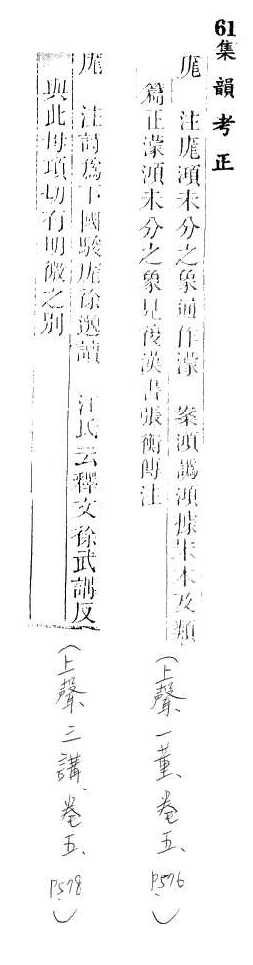 61集韻考正
庬 注庬澒未分之象通作濛 案澒譌鴻據宋本及類
篇正濛澒未分之象見後漢書張衡傳注
(上聲一董、卷五、P576)
庬 注詩爲下國駿庬徐邈讀 汪氏云釋文徐武講反
與此母項切有明微之別
(上聲三講、卷五、P578)